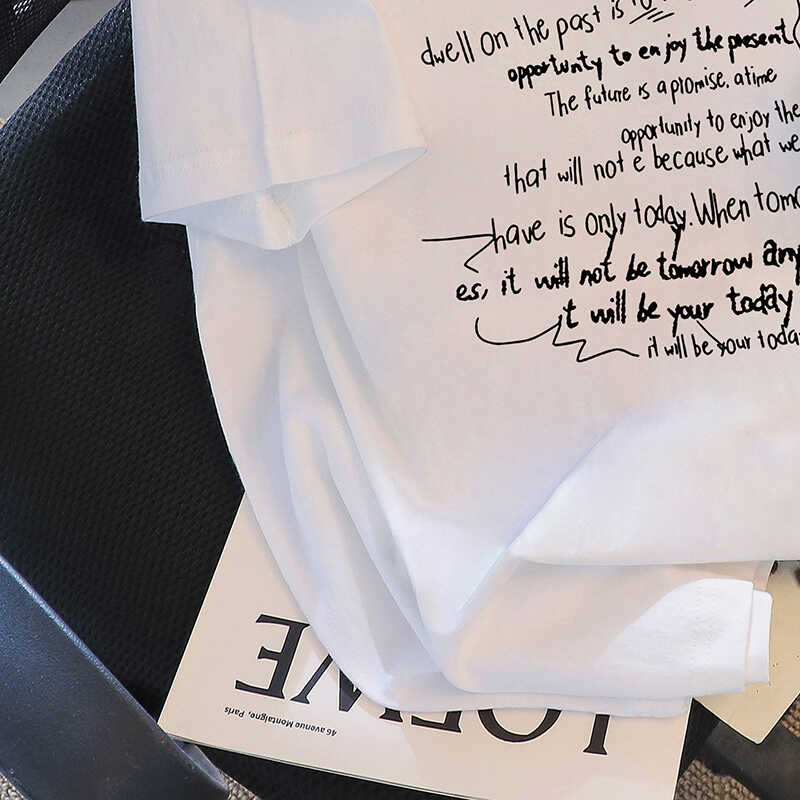 dwell on the past is to
opportunity to enjoy the present
The future is a promise. a time
opportunity to enjoy the
that will not e because what we
have is only today. When tomo
es, it will not be tomorrow any
it will be your today
it will be your today
LOEWE
46 avenue Montaigne, Paris